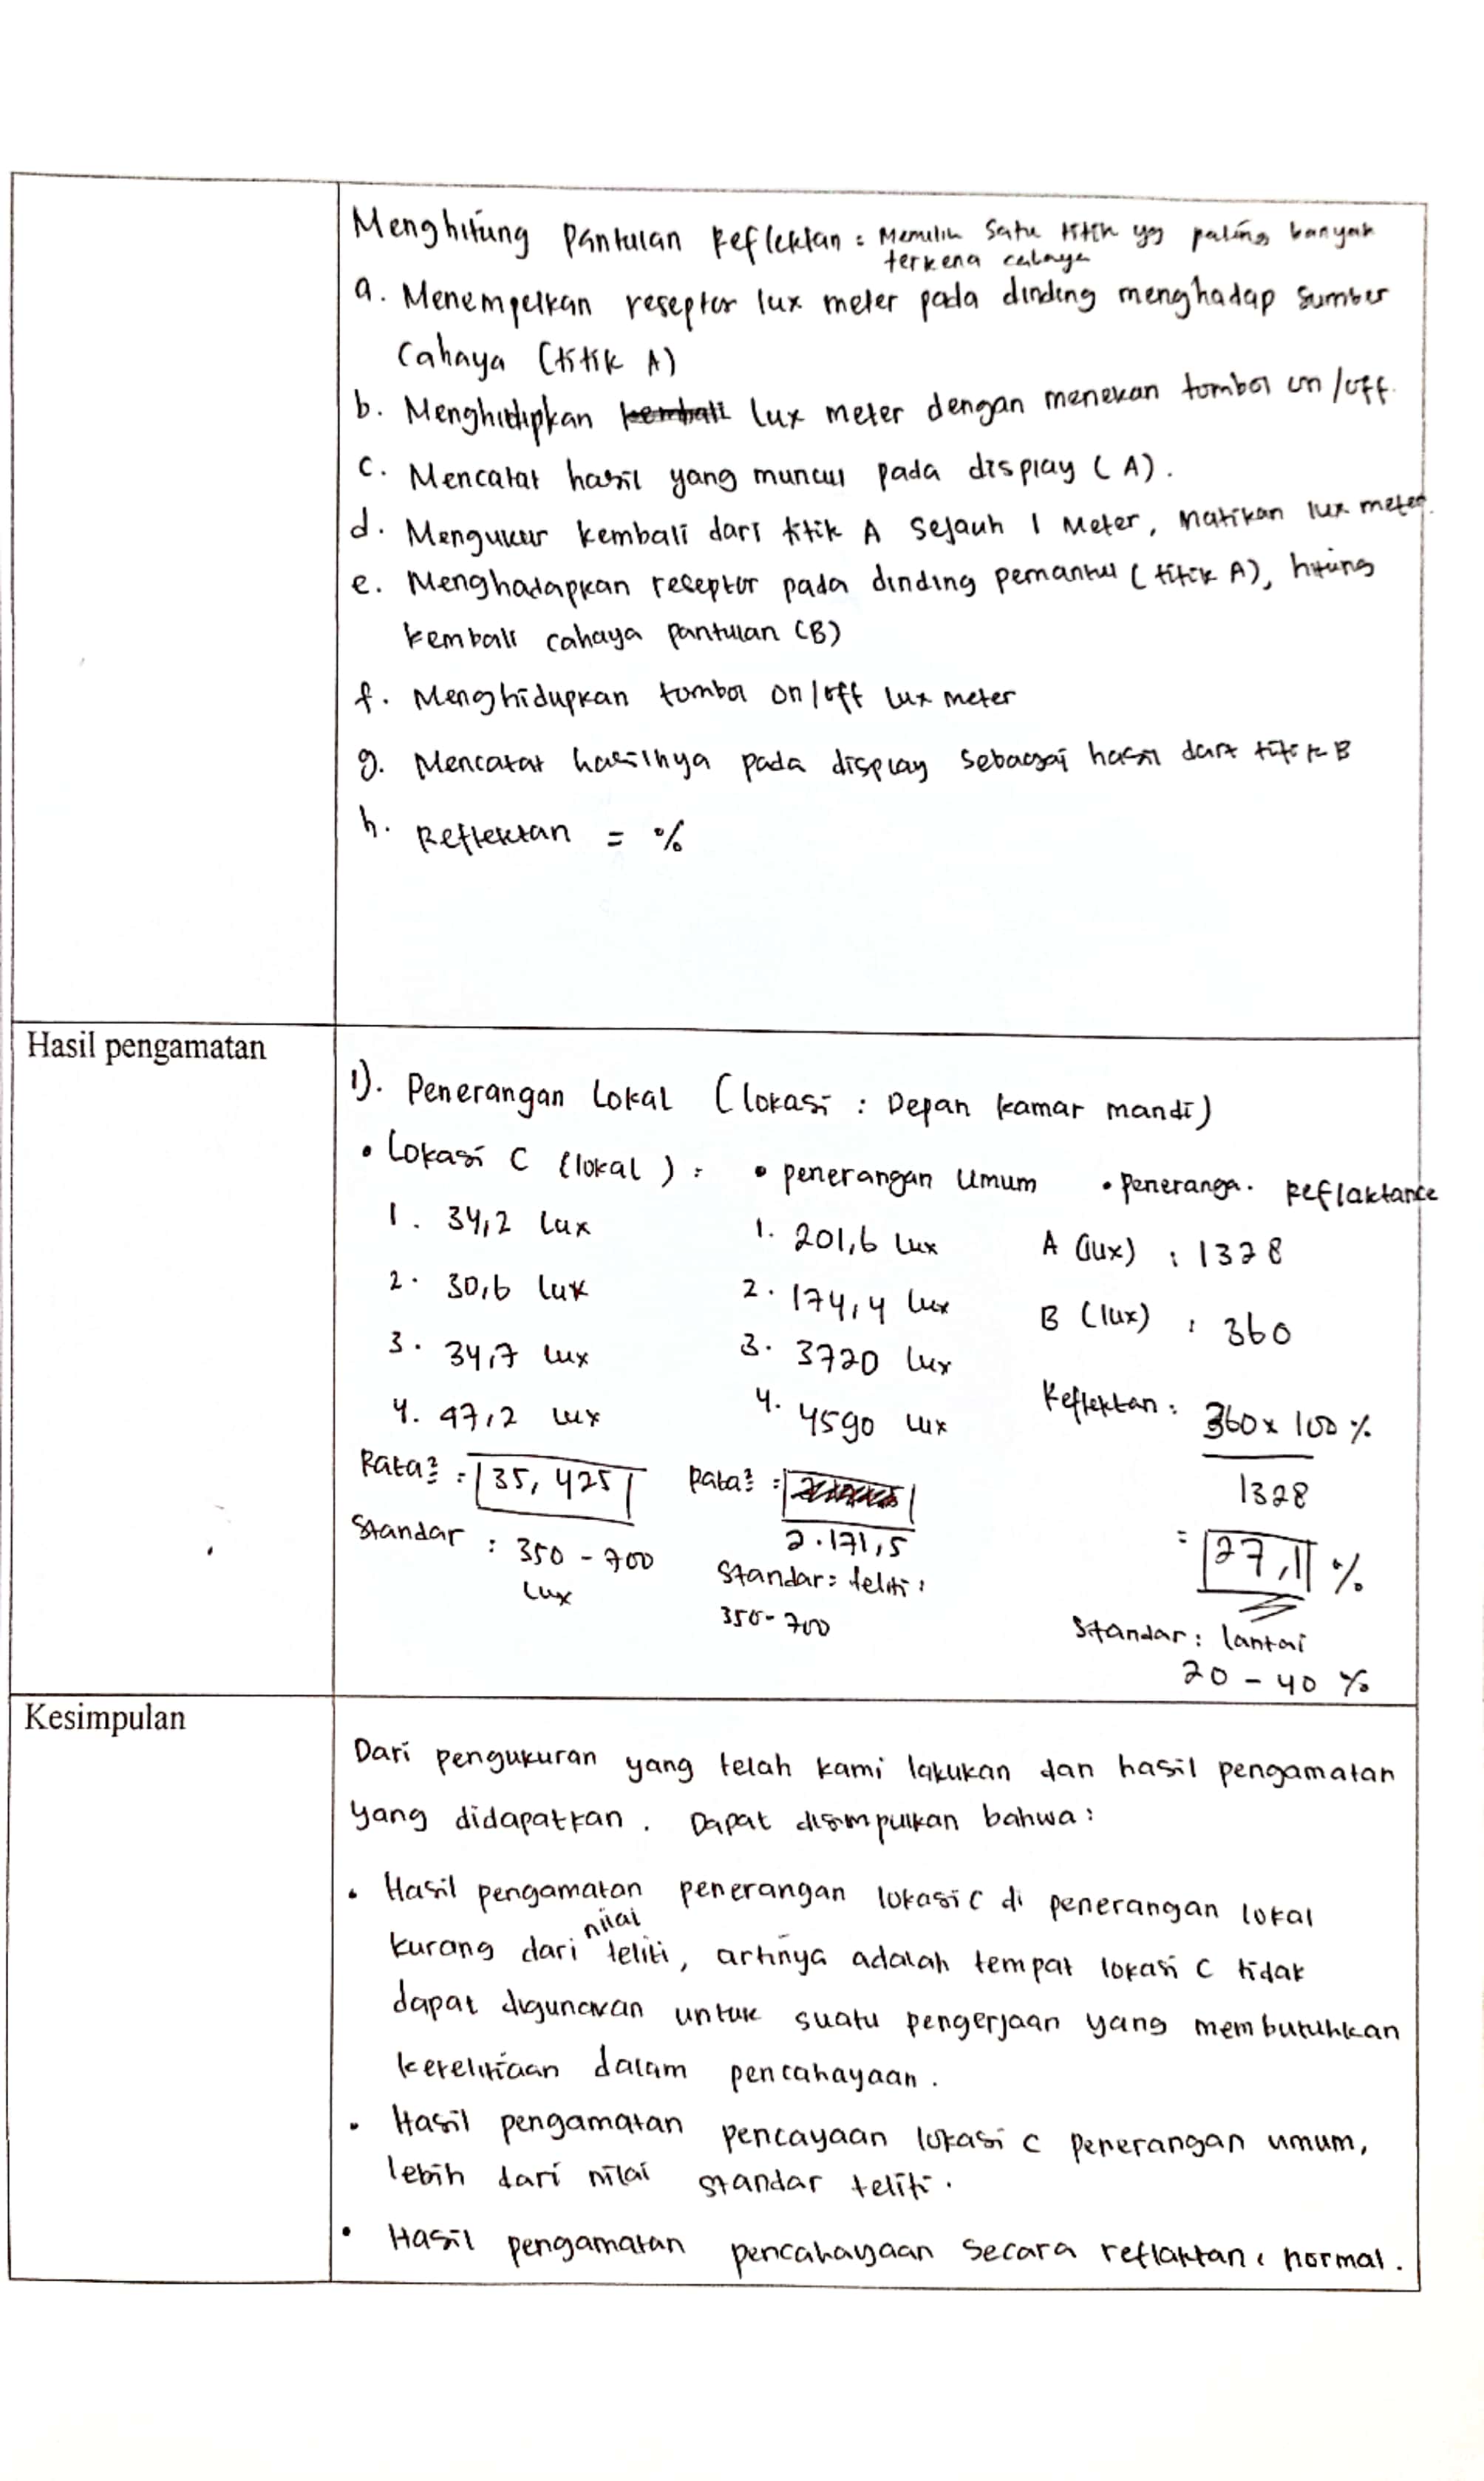 Menghitung Pantulan Reflektan : Memilih satu titik yg paling banyak
terkena cahaya
a. Menempelkan reseptor lux meter pada dinding menghadap sumber
Cahaya (titik A)
b. Menghidupkan kembali lux meter dengan menekan tombol on/off.
c. Mencatat hasil yang muncul pada display (A).
d. Mengukur kembali dari titik A sejauh 1 Meter, matikan lux meter.
e. Menghadapkan reseptor pada dinding pemantul (titik A), hitung
kembali cahaya pantulan (B)
f. Menghidupkan tombol on/off lux meter
g. Mencatat hasilnya pada display sebagai hasil dari titik B
h. Reflektan = %
Hasil pengamatan
1). Penerangan Lokal (lokasi : Depan kamar mandi)
• Lokasi C (lokal) : • penerangan Umum • peneranga. Reflaktance
1. 34,2 lux 1. 201,6 lux A (lux) : 1328
2. 30,6 lux 2. 174,4 lux B (lux) : 360
3. 34,7 lux 3. 3720 lux
4. 47,2 lux 4. 4590 lux Reflektan : 360 x 100 %
Rata² = 35,425 Rata² = 1328
Standar : 350 - 700 2.171,5 = 27,11 %
Lux Standar : teliti :
350-700 Standar : lantai
20 - 40 %
Kesimpulan
Dari pengukuran yang telah kami lakukan dan hasil pengamatan
yang didapatkan. Dapat disimpulkan bahwa :
• Hasil pengamatan penerangan lokasi C di penerangan lokal
kurang dari nilai teliti, artinya adalah tempat lokasi C tidak
dapat digunakan untuk suatu pengerjaan yang membutuhkan
ketelitiaan dalam pencahayaan.
• Hasil pengamatan pencayaan lokasi C penerangan umum,
lebih dari nilai standar teliti.
• Hasil pengamatan pencahayaan secara reflaktan, normal.